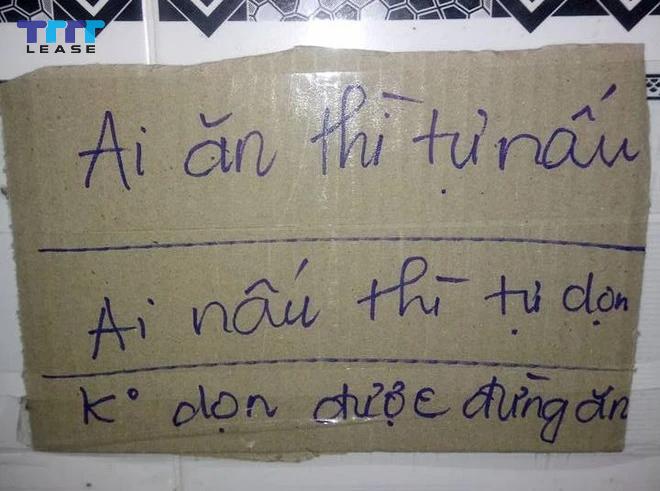 TTTT
LEASE
Ai ăn thì tự nấu
Ai nấu thì tự dọn
K° dọn được đừng ăn